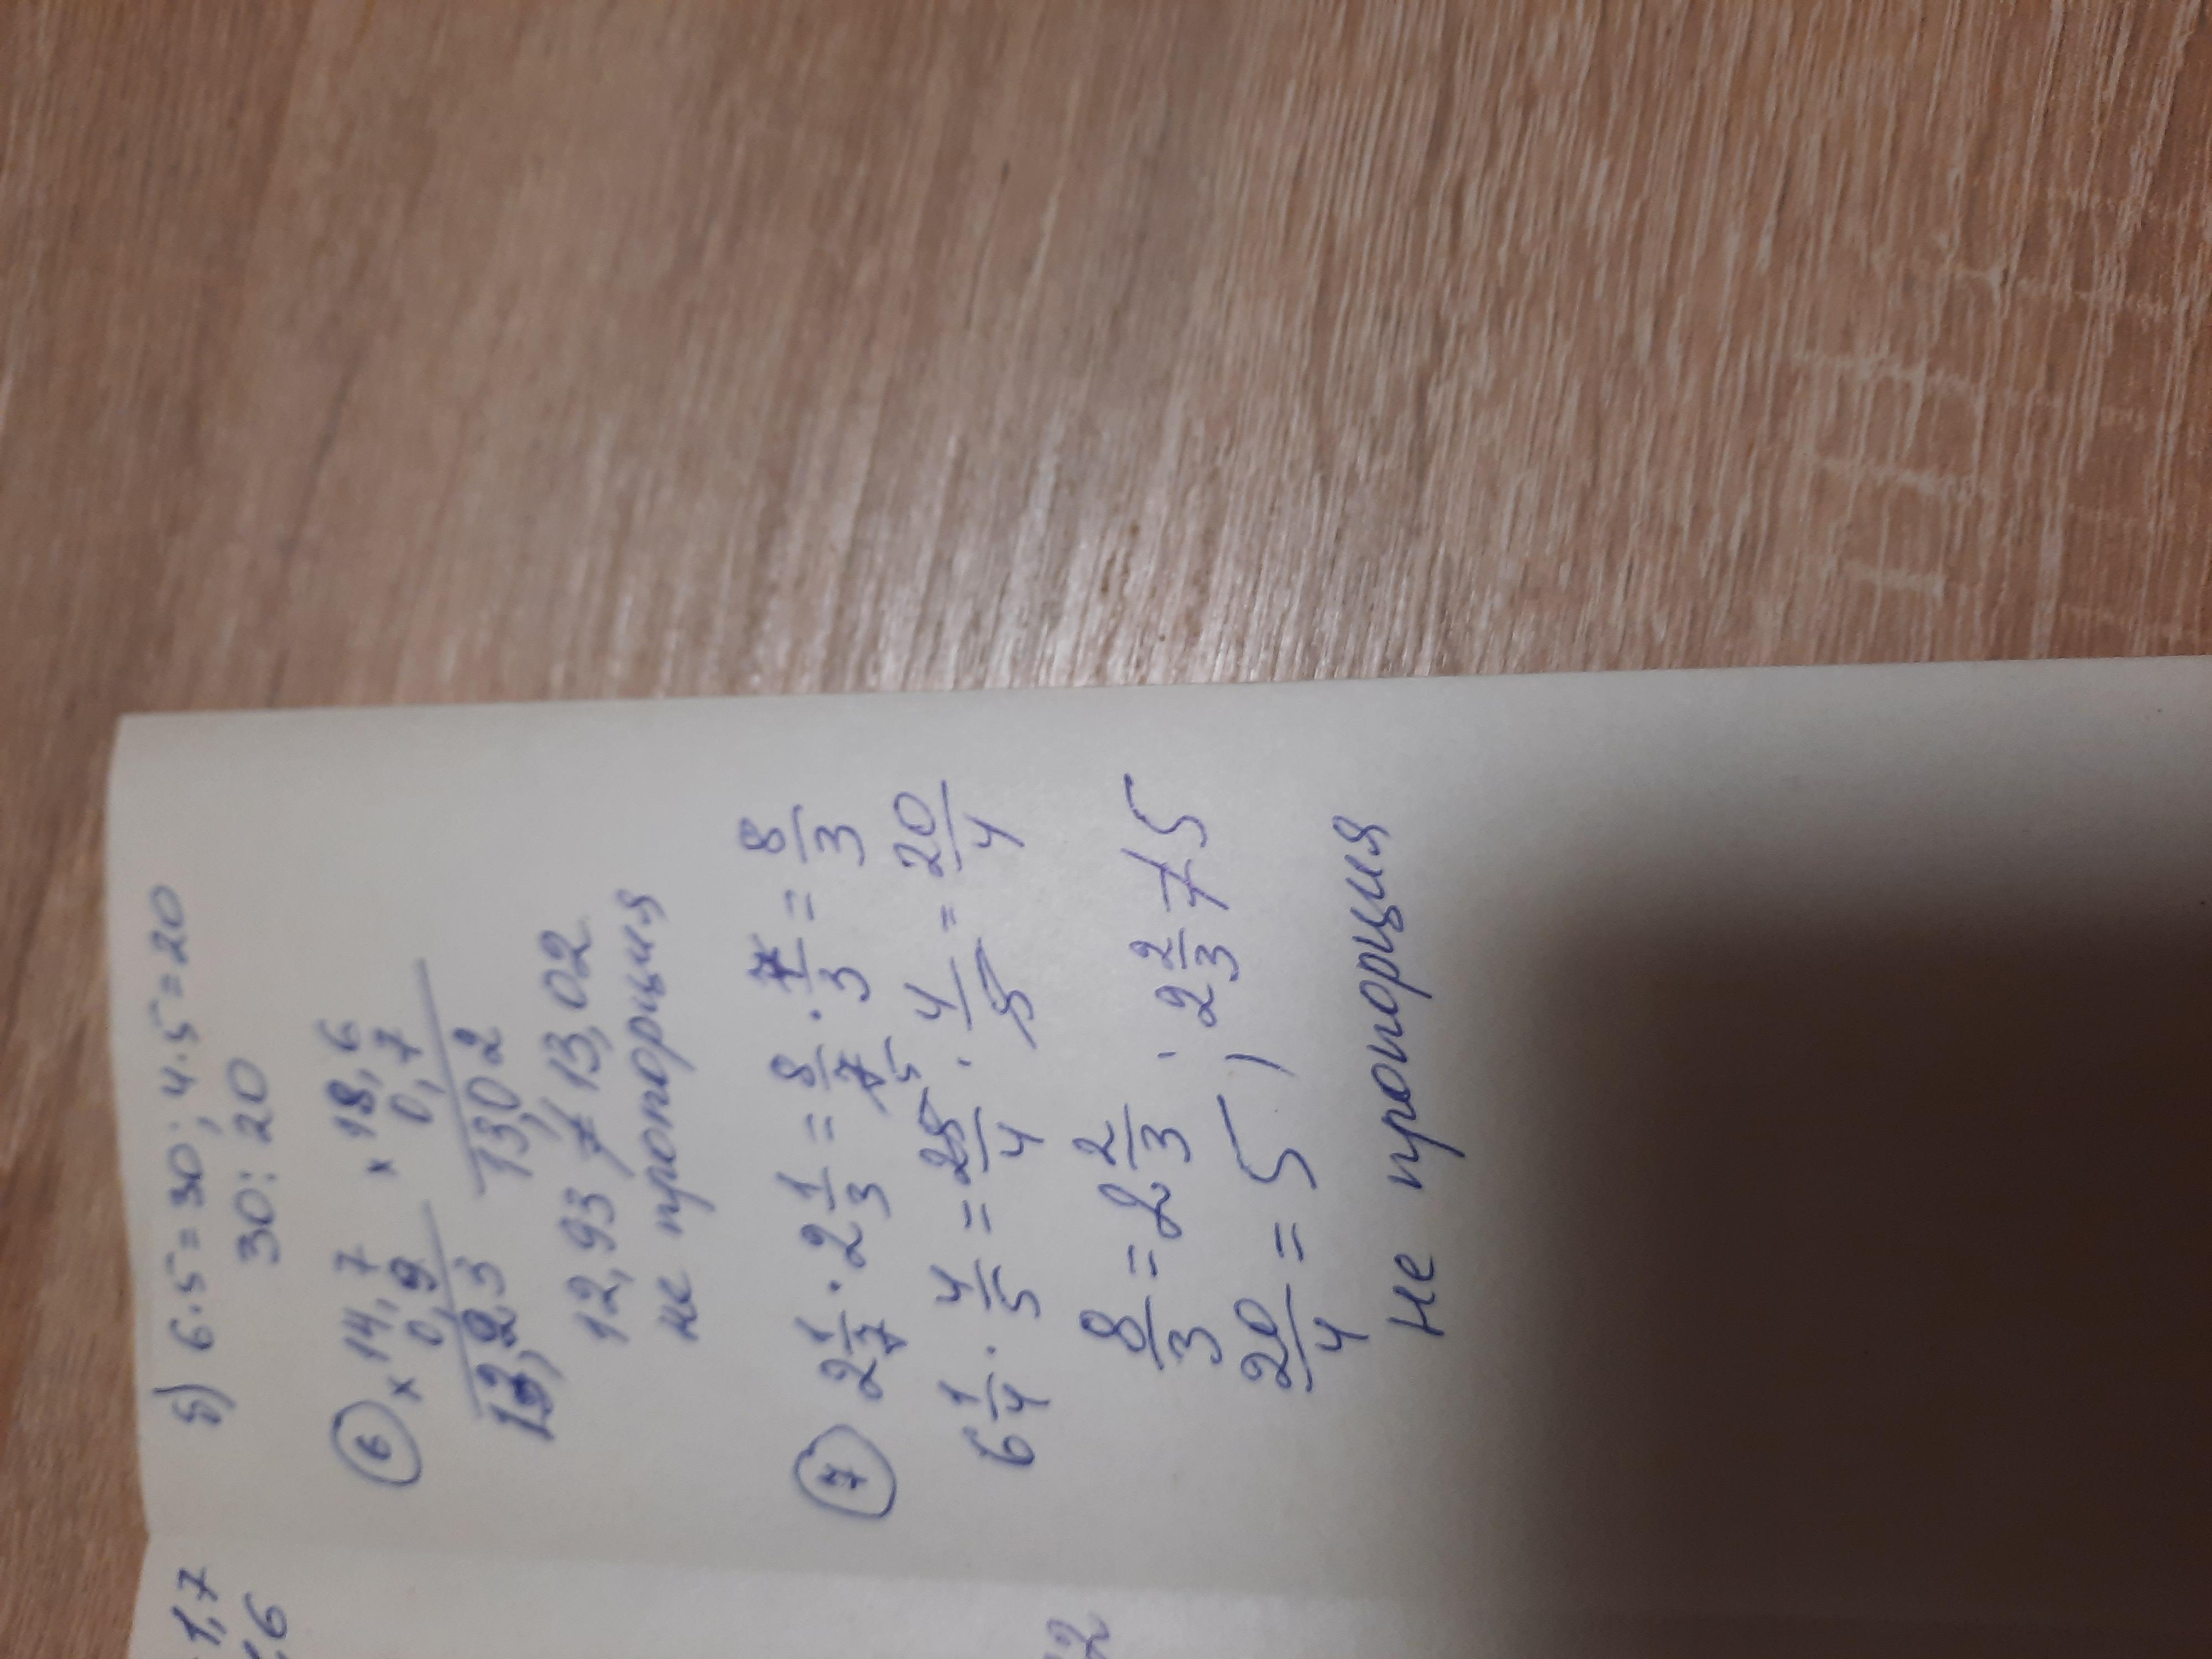 1,7
,6
б) 6·5=30; 4·5=20
30:20
⑥ ×14,7 ×18,6
0,9 0,7
13,02
12,93 ≠ 13,02
не пропорция
⑦ 2 1/7 · 2 1/3 = 8/7 · 7/3 = 8/3
6 1/4 · 4/5 = 25/4 · 4/5 = 20/4
8/3 = 2 2/3
20/4 = 5 ; 2 2/3 ≠ 5
не пропорция